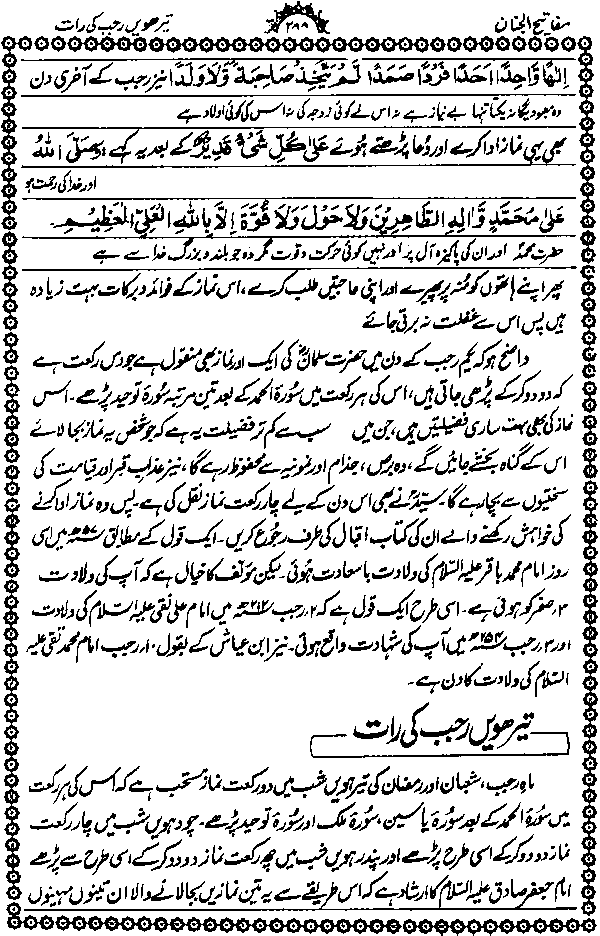 مفاتیح الجنان
۲۹۹
تیرھویں رجب کی رات
اِلٰھًا وَّاحِدًا اَحَدًا فَرْدًا صَمَدًا لَمْ یَتَّخِذْ صَاحِبَۃً وَّلَا وَلَدًا نیز رجب کے آخری دن
وہ معبود یگانہ یکتا تنہا بے نیاز ہے نہ اس نے کوئی زوجہ کی نہ اس کی کوئی اولاد ہے
بھی یہی نماز ادا کرے اور دعا پڑھتے ہوئے عَلٰی کُلِّ شَیْءٍ قَدِیْرٌ کے بعد یہ کہے وَصَلَّی اللّٰہُ
اور خدا کی رحمت ہو
عَلٰی مُحَمَّدٍ وَّاٰلِہِ الطَّاھِرِیْنَ وَلَا حَوْلَ وَلَا قُوَّۃَ اِلَّا بِاللّٰہِ الْعَلِیِّ الْعَظِیْمِ۔
حضرت محمدؐ اور ان کی پاکیزہ آل پر اور نہیں کوئی حرکت و قوت مگر وہ جو بلند و بزرگ خدا سے ہے
پھر اپنے ہاتھوں کو منہ پر پھیرے اور اپنی حاجتیں طلب کرے، اس نماز کے فوائد و برکات بہت زیادہ
ہیں پس اس سے غفلت نہ برتی جائے
واضح ہو کہ یکم رجب کے دن میں حضرت سلمانؓ کی ایک اور نماز بھی منقول ہے جو دس رکعت ہے
کہ دو دو کر کے پڑھی جاتی ہیں، اس کی ہر رکعت میں سورۃ الحمد کے بعد تین مرتبہ سورۃ توحید پڑھے۔ اس
نماز کی بھی بہت ساری فضیلتیں ہیں، جن میں سب سے کم تر فضیلت یہ ہے کہ جو شخص یہ نماز بجا لائے
اس کے گناہ بخشے جائیں گے، وہ برص، جذام اور نمونیہ سے محفوظ رہے گا، نیز عذاب قبر اور قیامت کی
سختیوں سے بچا رہے گا۔ سیدؒ نے بھی اس دن کے لیے چار رکعت نماز نقل کی ہے۔ پس وہ نماز ادا کرنے
کی خواہش رکھنے والے ان کی کتاب اقبال کی طرف رجوع کریں۔ ایک قول کے مطابق ۵۷ھ میں اسی
روز امام محمد باقر علیہ السّلام کی ولادت باسعادت ہوئی۔ لیکن مؤلف کا خیال ہے کہ آپ کی ولادت
۳؍ صفر کو ہوئی ہے۔ اسی طرح ایک قول ہے کہ ۲؍ رجب ۲۱۲ھ میں امام علی نقی علیہ السّلام کی ولادت
اور ۳؍ رجب ۲۵۴ھ میں آپ کی شہادت واقع ہوئی۔ نیز ابن عیاش کے بقول ۱۰؍ رجب امام محمد تقی علیہ
السّلام کی ولادت کا دن ہے۔
تیرھویں رجب کی رات
ماہ رجب، شعبان اور رمضان کی تیرھویں شب میں دو رکعت نماز مستحب ہے کہ اس کی ہر رکعت
میں سورۃ الحمد کے بعد سورۃ یاسین، سورۃ ملک اور سورۃ توحید پڑھے۔ چودھویں شب میں چار رکعت
نماز دو دو کر کے اسی طرح پڑھے اور پندرھویں شب میں چھ رکعت نماز دو دو کر کے اسی طرح سے پڑھے
امام جعفر صادق علیہ السّلام کا ارشاد ہے کہ اس طریقے سے یہ تین نمازیں بجا لانے والا ان تینوں مہینوں